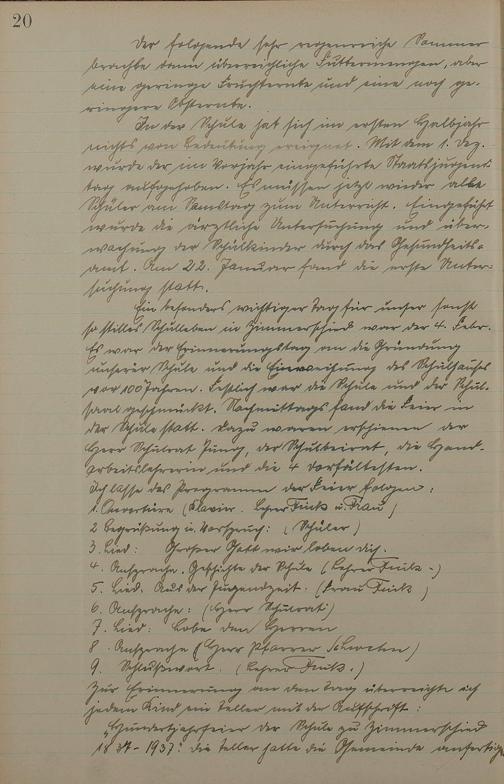 20
Der folgende sehr regenreiche Sommer
brachte dann überreichliche Futtermengen, aber
eine geringe Fruchternte und eine noch ge-
ringere Obsternte.
In der Schule hat sich im ersten Halbjahr
nichts von Bedeutung ereignet. Mit dem 1. Dez.
wurde der im Vorjahr eingeführte Staatsjugend-
tag aufgehoben. Es müssen jetzt wieder alle
Schüler am Samstag zum Unterricht. Eingeführt
wurde die ärztliche Untersuchung und über-
wachung der Schulkinder durch das Gesundheits-
amt. Am 22. Januar fand die erste Unter-
suchung statt.
Ein besonders wichtiger Tag für unser sonst
so stilles Schulleben in Zimmerschied war der 4. Febr.
Es war der Erinnerungstag an die Gründung
unserer Schule und die Einweihung des Schulhauses
vor 100 Jahren. Festlich war die Schule und der Schul-
saal geschmückt. Nachmittags fand die Feier in
der Schule statt. Dazu waren erschienen der
Herr Schulrat Jung, der Schulbeirat, die Hand-
arbeitslehrerin und die 4 Dorfältesten.
Ich lasse das Programm der Feier folgen:
1. Ouvertüre (Klavier. Lehrer Finck u. Frau)
2 Begrüßung u. Vorspruch: (Schüler)
3. Lied: Großer Gott wir loben dich.
4. Ansprache. Geschichte der Schule (Lehrer Finck.)
5. Lied. Aus der Jugendzeit. (Frau Finck)
6. Ansprache: (Herr Schulrat)
7. Lied: Lobe den Herren
8. Ansprache (Herr Pfarrer)
9. Schlußwort. (Lehrer Finck.)
Zur Erinnerung an den Tag überreichte ich
jedem Kind ein Teller mit der Aufschrift:
"Hundertjahrfeier der Schule zu Zimmerschied
1837-1937." Die Teller hatte die Gemeinde anfertigen